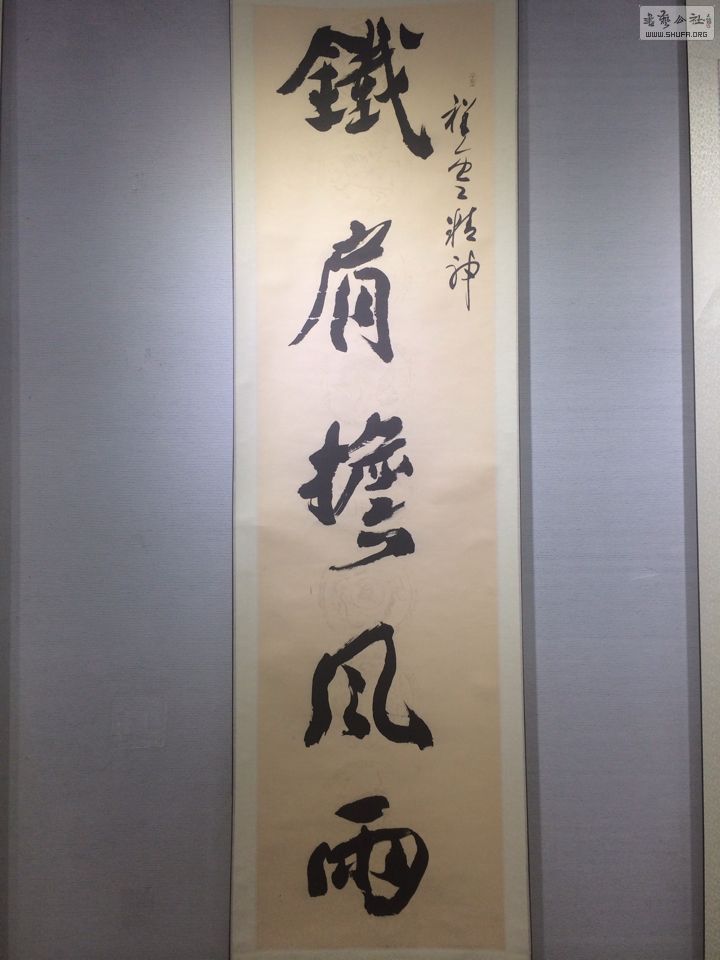 祥雲精神
鐵肩擔風雨
書藝公社
WWW.SHUFA.ORG